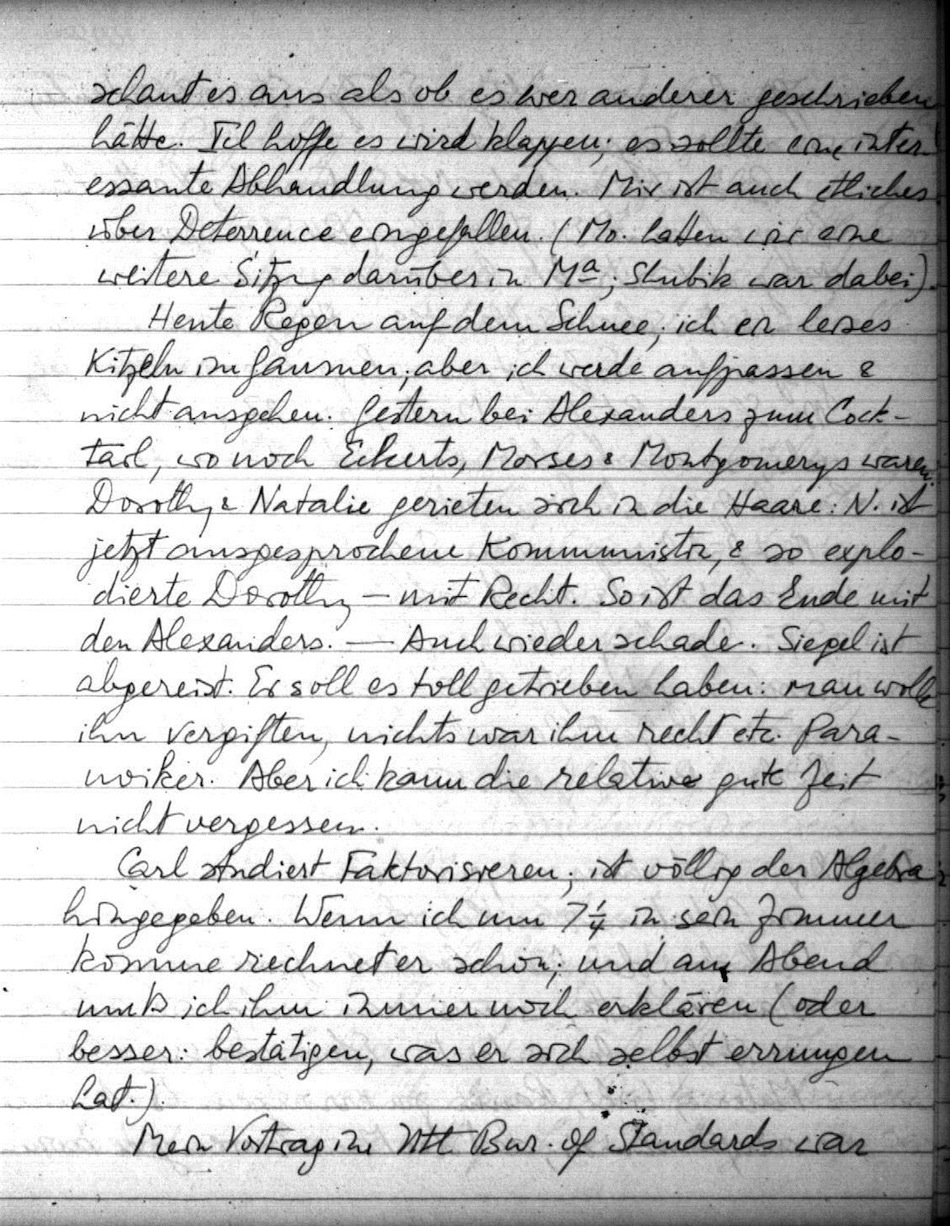 schaut es aus als ob es wer anderer geschrieben
hätte. Ich hoffe es wird klappen; es sollte eine inter
essante Abhandlung werden. Mir ist auch etliches
über Deterrence eingefallen. (Mo. hatten wir eine
weitere Sitzg darüber in Ma; Shubik war dabei).
Heute Regen auf dem Schnee; ich ein leises
Kitzeln im Gaumen, aber ich werde aufpassen &
nicht ausgehen. Gestern bei Alexanders zum Cock-
tail, wo noch Eckerts, Morses & Montgomerys waren.
Dorothy & Natalie gerieten sich in die Haare: N. ist
jetzt ausgesprochene Kommunistin, & so explo-
dierte Dorothy – mit Recht. So ist das Ende mit
den Alexanders. — Auch wieder schade. Siegel ist
abgereist. Er soll es toll getrieben haben: man wolle
ihn vergiften, nichts war ihm recht etc. Para-
noiker. Aber ich kann die relative gute Zeit
nicht vergessen.
Carl studiert Faktorisieren, ist völlig der Algebra
hingegeben. Wenn ich um 7¼ in sein Zimmer
komme rechnet er schon; und am Abend
muß ich ihm immer noch erklären (oder
besser: bestätigen, was er sich selbst errungen
hat.).
Mein Vortrag im Ntl Bur. of Standards war